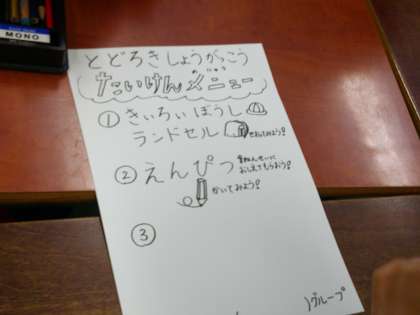 MONO
とどろきしょうがっこう
たいけんメニュー
① きいろいぼうし
ランドセル せおってみよう!
② えんぴつ
おしえてもらおう!
かいてみよう!
③
)グループ